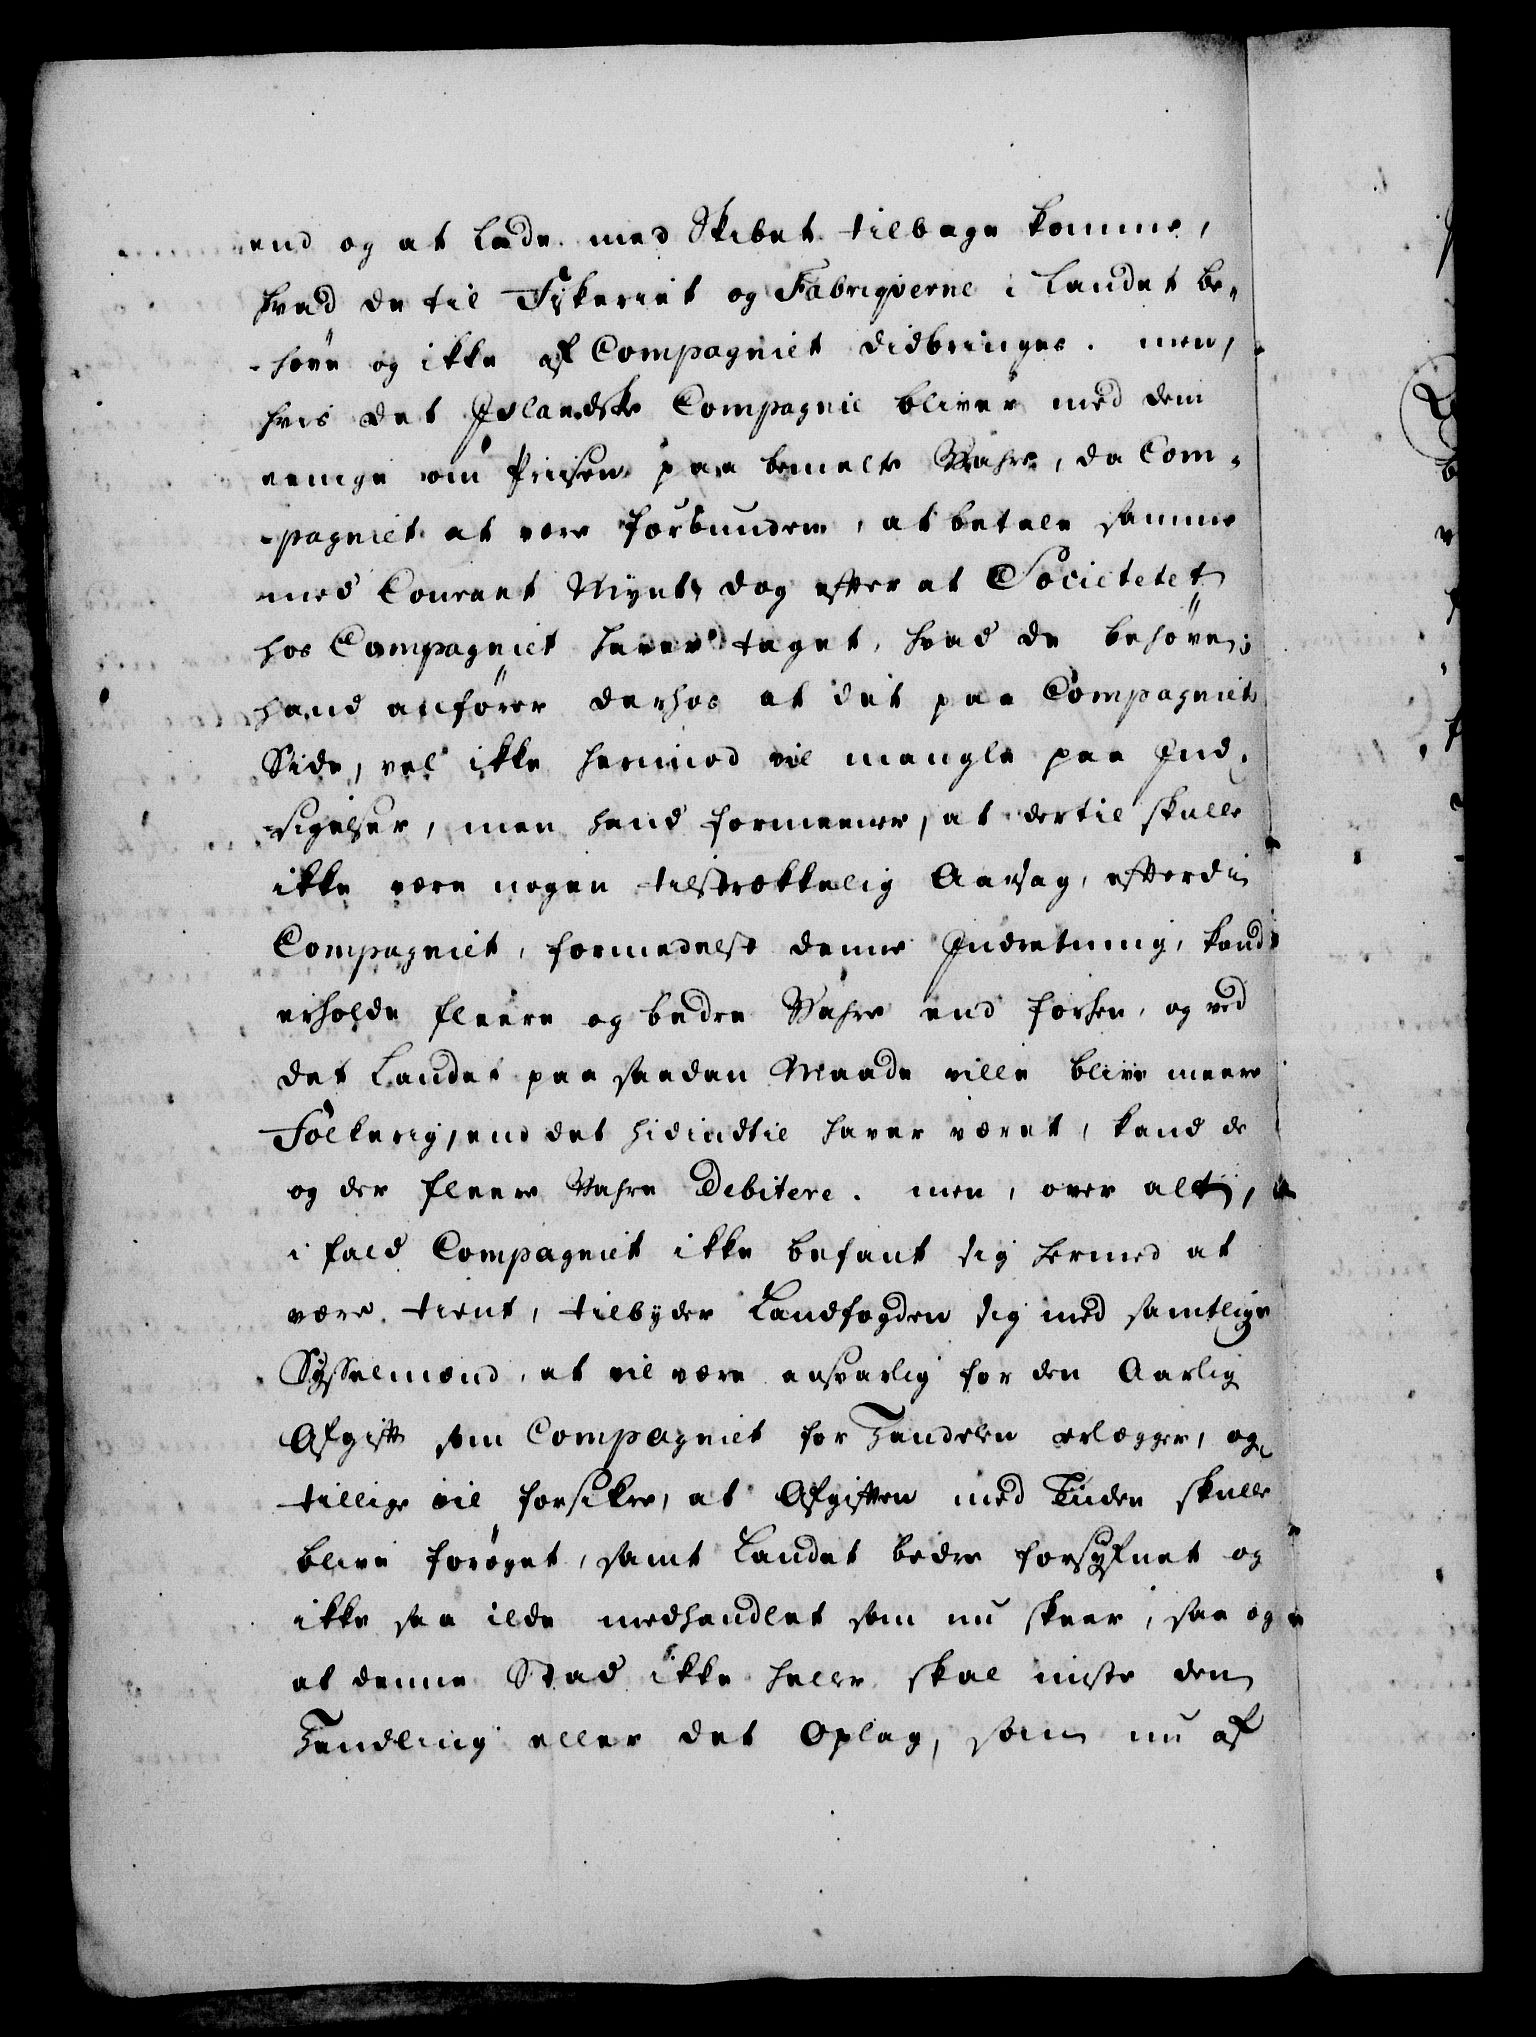 end og at lade med Skibet tilbage komme,
hvad de til Fiskeriet og Fabriqverne i Landet be-
-høve og ikke af Compagniet didbringes. men,
hvis det Islandske Compagnie bliver med dem
eenige om Priisen paa bemelte Vahre, da Com-
-pagniet at være forbunden, at betale samme
med Courant Mynt, dog efter at Societetet
hos Compagniet haver taget, hvad de behøve;
hand anfører derhos at det paa Compagniets
Side, vel ikke herimod vil mangle paa Ind-
-sigelser, men hand formeener, at dertil skulle
ikke være nogen tilstrækkelig Aarsag, efterdi
Compagniet, formedelst denne Indretning, kand
erholde fleere og bedre Vahre end forhen, og ved
det Landet paa saadan Maade ville blive meere
Folkerig, end det hidindtil haver været, kand de
og der fleere Vahre Debitere. men, over alt,
i fald Compagniet ikke befant sig hermed at
være tient, tilbyder Landfogden sig med samtlige
Sysselmænd, at vil være ansvarlig for den Aarlig
Afgift som Compagniet for Handelen erlægger, og
tillige vil forsikre, at Afgiften med Tiiden skulle
blive forøget, samt Landet bedre forsyfnet og
ikke saa ilde medhandlet som nu skeer, saa og
at denne Stad ikke heller skal miste den
Handling eller det Oplag, som nu af